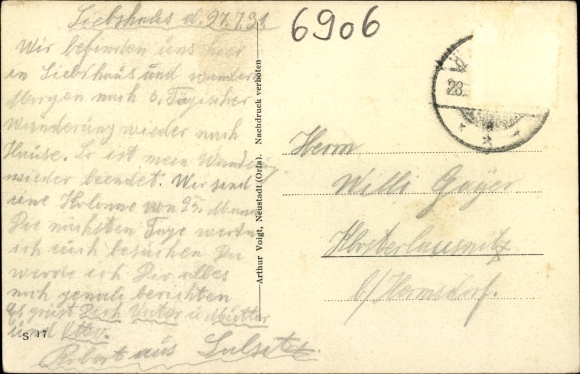 Liebshaus d. 27.7.31
Wir befinden uns hier
in Liebshaus und wandern
Morgen nach 6. Tägischer
Wanderung wieder nach
Hause. So ist mein Wandern
wieder beendet. Wir sind
eine Kolonne von 25 Mann
Die nächsten Tage werde
ich euch besuchen Da
werde ich Dir alles
noch genau berichten
Es grüst Dich Vater u Mutter
und
Robert aus
S 17
Arthur Voigt, Neustadt (Orla). Nachdruck verboten
6906
28.
Herrn
Willi Geyer
Klosterlausnitz
b/Hermsdorf.